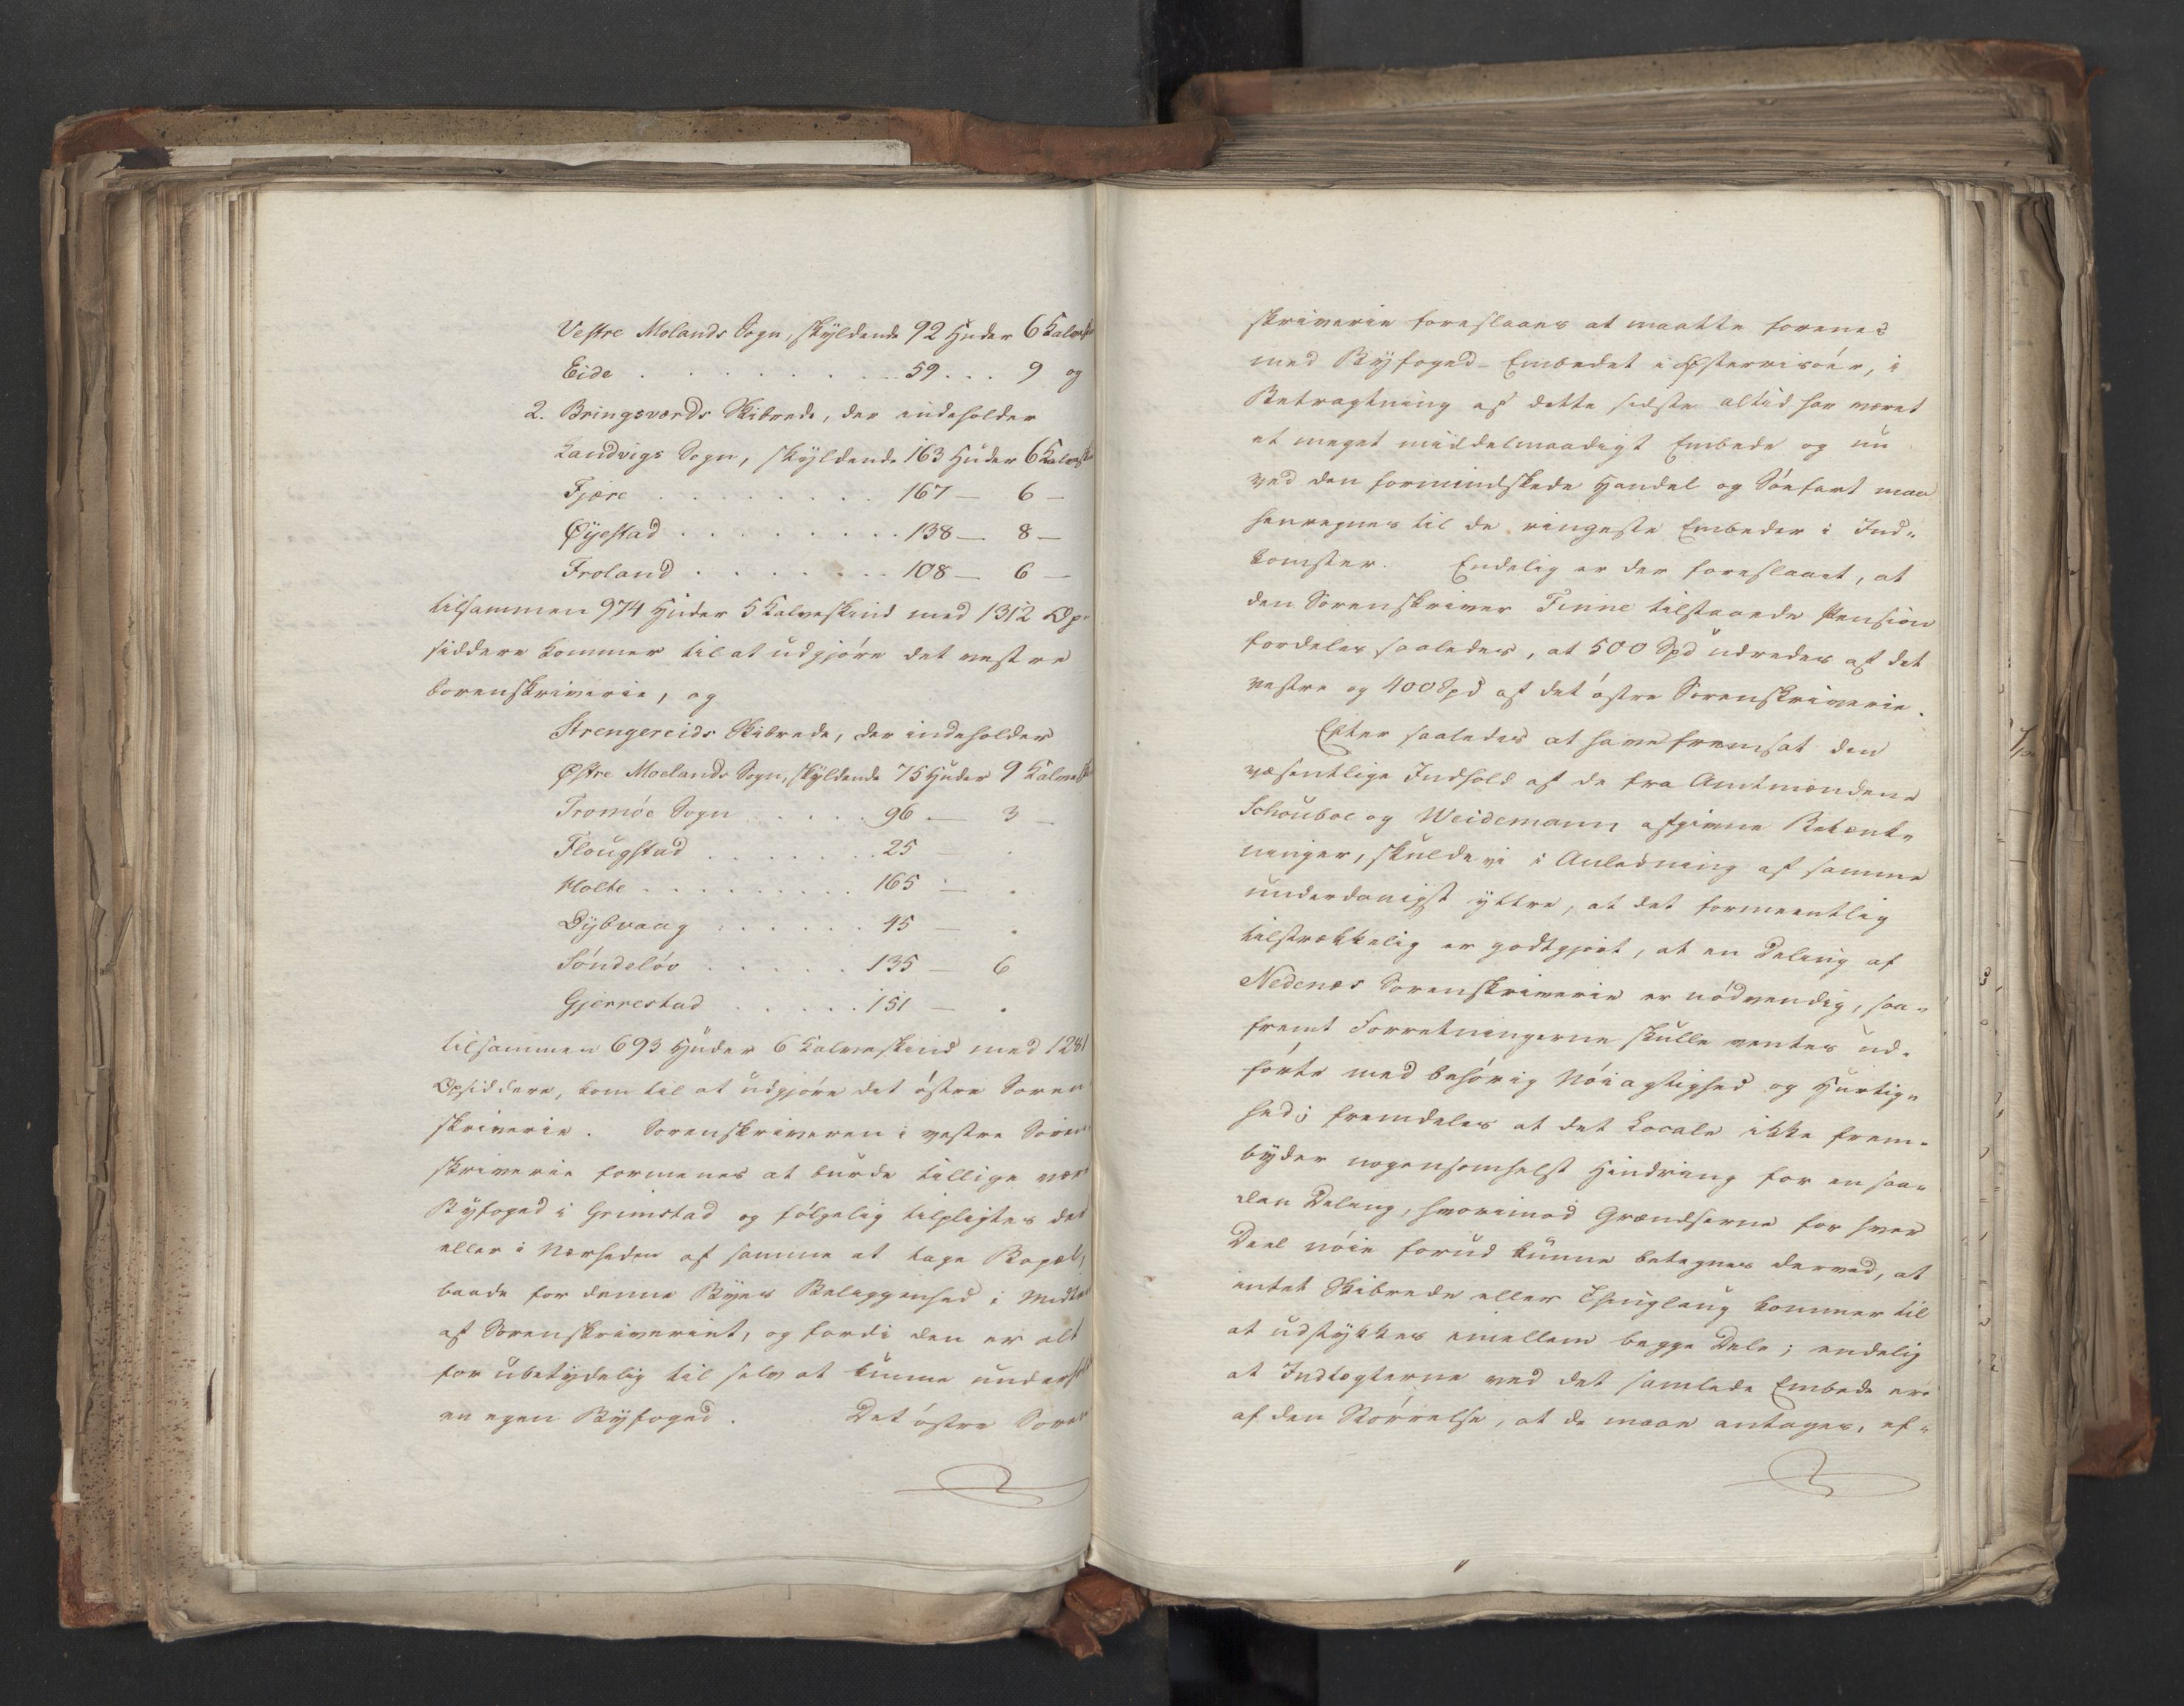 Vestre Molands Sogn, skyldende 92 Huder 6 Kalvsk
Eide . . . . . . . . . 59 . . . 9 og
2. Bringsværds Skibrede, der indeholder
Landvigs Sogn, skyldende 163 Huder 6 Kalvsk
Fjære . . . . . . . . 167 — 6 —
Øyestad . . . . . . . . 138 — 8 —
Froland . . . . . . . 108 — 6 —
tilsammen 974 Huder 5 Kalveskind med 1312 Op-
siddere kommer til at udgjøre det vestre
Sorenskriverie, og
Strengereids Skibrede, der indeholder
Østre Moelands Sogn, skyldende 75 Huder 9 Kalvesk
Tromøe Sogn . . . . . 96 — 3 —
Flougstad . . . . . . . 25 — .
Holte . . . . . . . . . 165 — .
Dybvaag . . . . . . 45 — .
Søndeløv . . . . . 135 — 6
Gjerrestad . . . . . 151 — .
tilsammen 693 Huder 6 Kalveskind med 1281
Opsiddere, kom til at udgjøre det østre Soren
skriverie. Sorenskriveren i vestre Soren
skriverie formenes at burde tillige være
Byfoged i Grimstad og følgelig tilpligtes der
eller i Nærheden af samme at tage Bopæl,
baade for denne Byes Beliggenhed i Midten
af Sorenskriveriet, og fordi den er alt
for ubetydelig til selv at kunne underhol
en egen Byfoged. Det østre Soren
skriverie foreslaaes at maatte forenes
med Byfoged-Embedet i Østerrisöer, i
Betragtning af dette sidste altid har været
et meget middelmaadigt Embede og nu
ved den formindskede Handel og Söefart maa
henregnes til de ringeste Embeder i Ind-
komster. Endelig er der foreslaaet, at
den Sorenskriver Finne tilstaaede Pension
fordeles saaledes, at 500 Spd udredes af det
vestre og 400 Spd af det östre Sorenskriverie.
Efter saaledes at have fremsat den
væsentlige Indhold af de fra Amtmændene
Schouboe og Weidemann afgivne Betænk-
ninger, skulde vi i Anledning af samme
underdanigst yttre, at det formeentlig
tilstrækkelig er godtgjort, at en Deling af
Nedenæs Sorenskriverie er nödvendig, saa-
fremt Forretningerne skulle ventes ud-
førte med behørig Nöiagtighed og Hurtig-
hed; fremdeles at det Locale ikke frem-
byder nogensomhelst Hindring for en saa-
dan Deling, hvorimod Grændserne for hver
Deel nöie forud kunne betegnes derved, at
intet Skibrede eller Thinglaug kommer til
at udstykkes imellem begge Dele; endelig
at Indtægterne ved det samlede Embede ere
af den Störrelse, at de maae antages, ef-